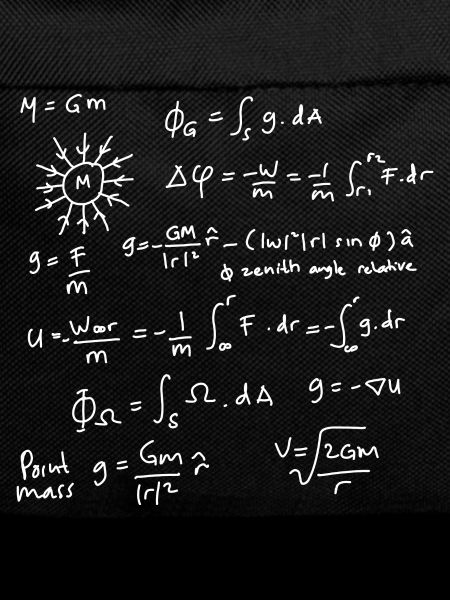 M = Gm
ϕ_G = ∫_S g. dA
M
Δφ = -W/m = -1/m ∫_r₁^r₂ F.dr
g = F/m
g = - GM/|r|² r̂ - (|w|²|r| sin ϕ) â
ϕ zenith angle relative
u = - W∞r/m = - 1/m ∫_∞^r F . dr = - ∫_∞^r g.dr
Φ_Ω = ∫_S Ω . dA
g = - ∇u
Point mass g = Gm/|r|² r̂
V = √2Gm/r